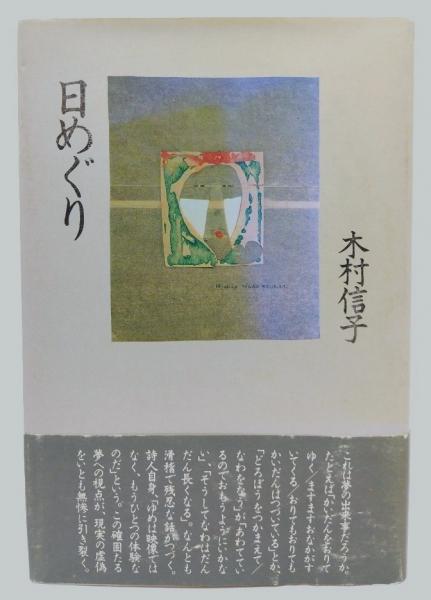 日めくり
木村信子
これは夢の出来事だろうか。
たとえば「かいだんをおりて
ゆく/ますますおなかがす
いてくる/おりてもおりても
かいだんはつづいている」とか、
「どろぼうをつかまえて/
なわをなう」が「あわててい
るのでおもうようにいかな
い」、「そうしてなわはだん
だん長くなる」。なんとも
滑稽で残忍な話がつづく。
詩人自身、「ゆめは映像では
なく、もうひとつの体験な
のだ」という。この確固たる
夢への視点が、現実の虚偽
をいとも無惨に引き裂く。